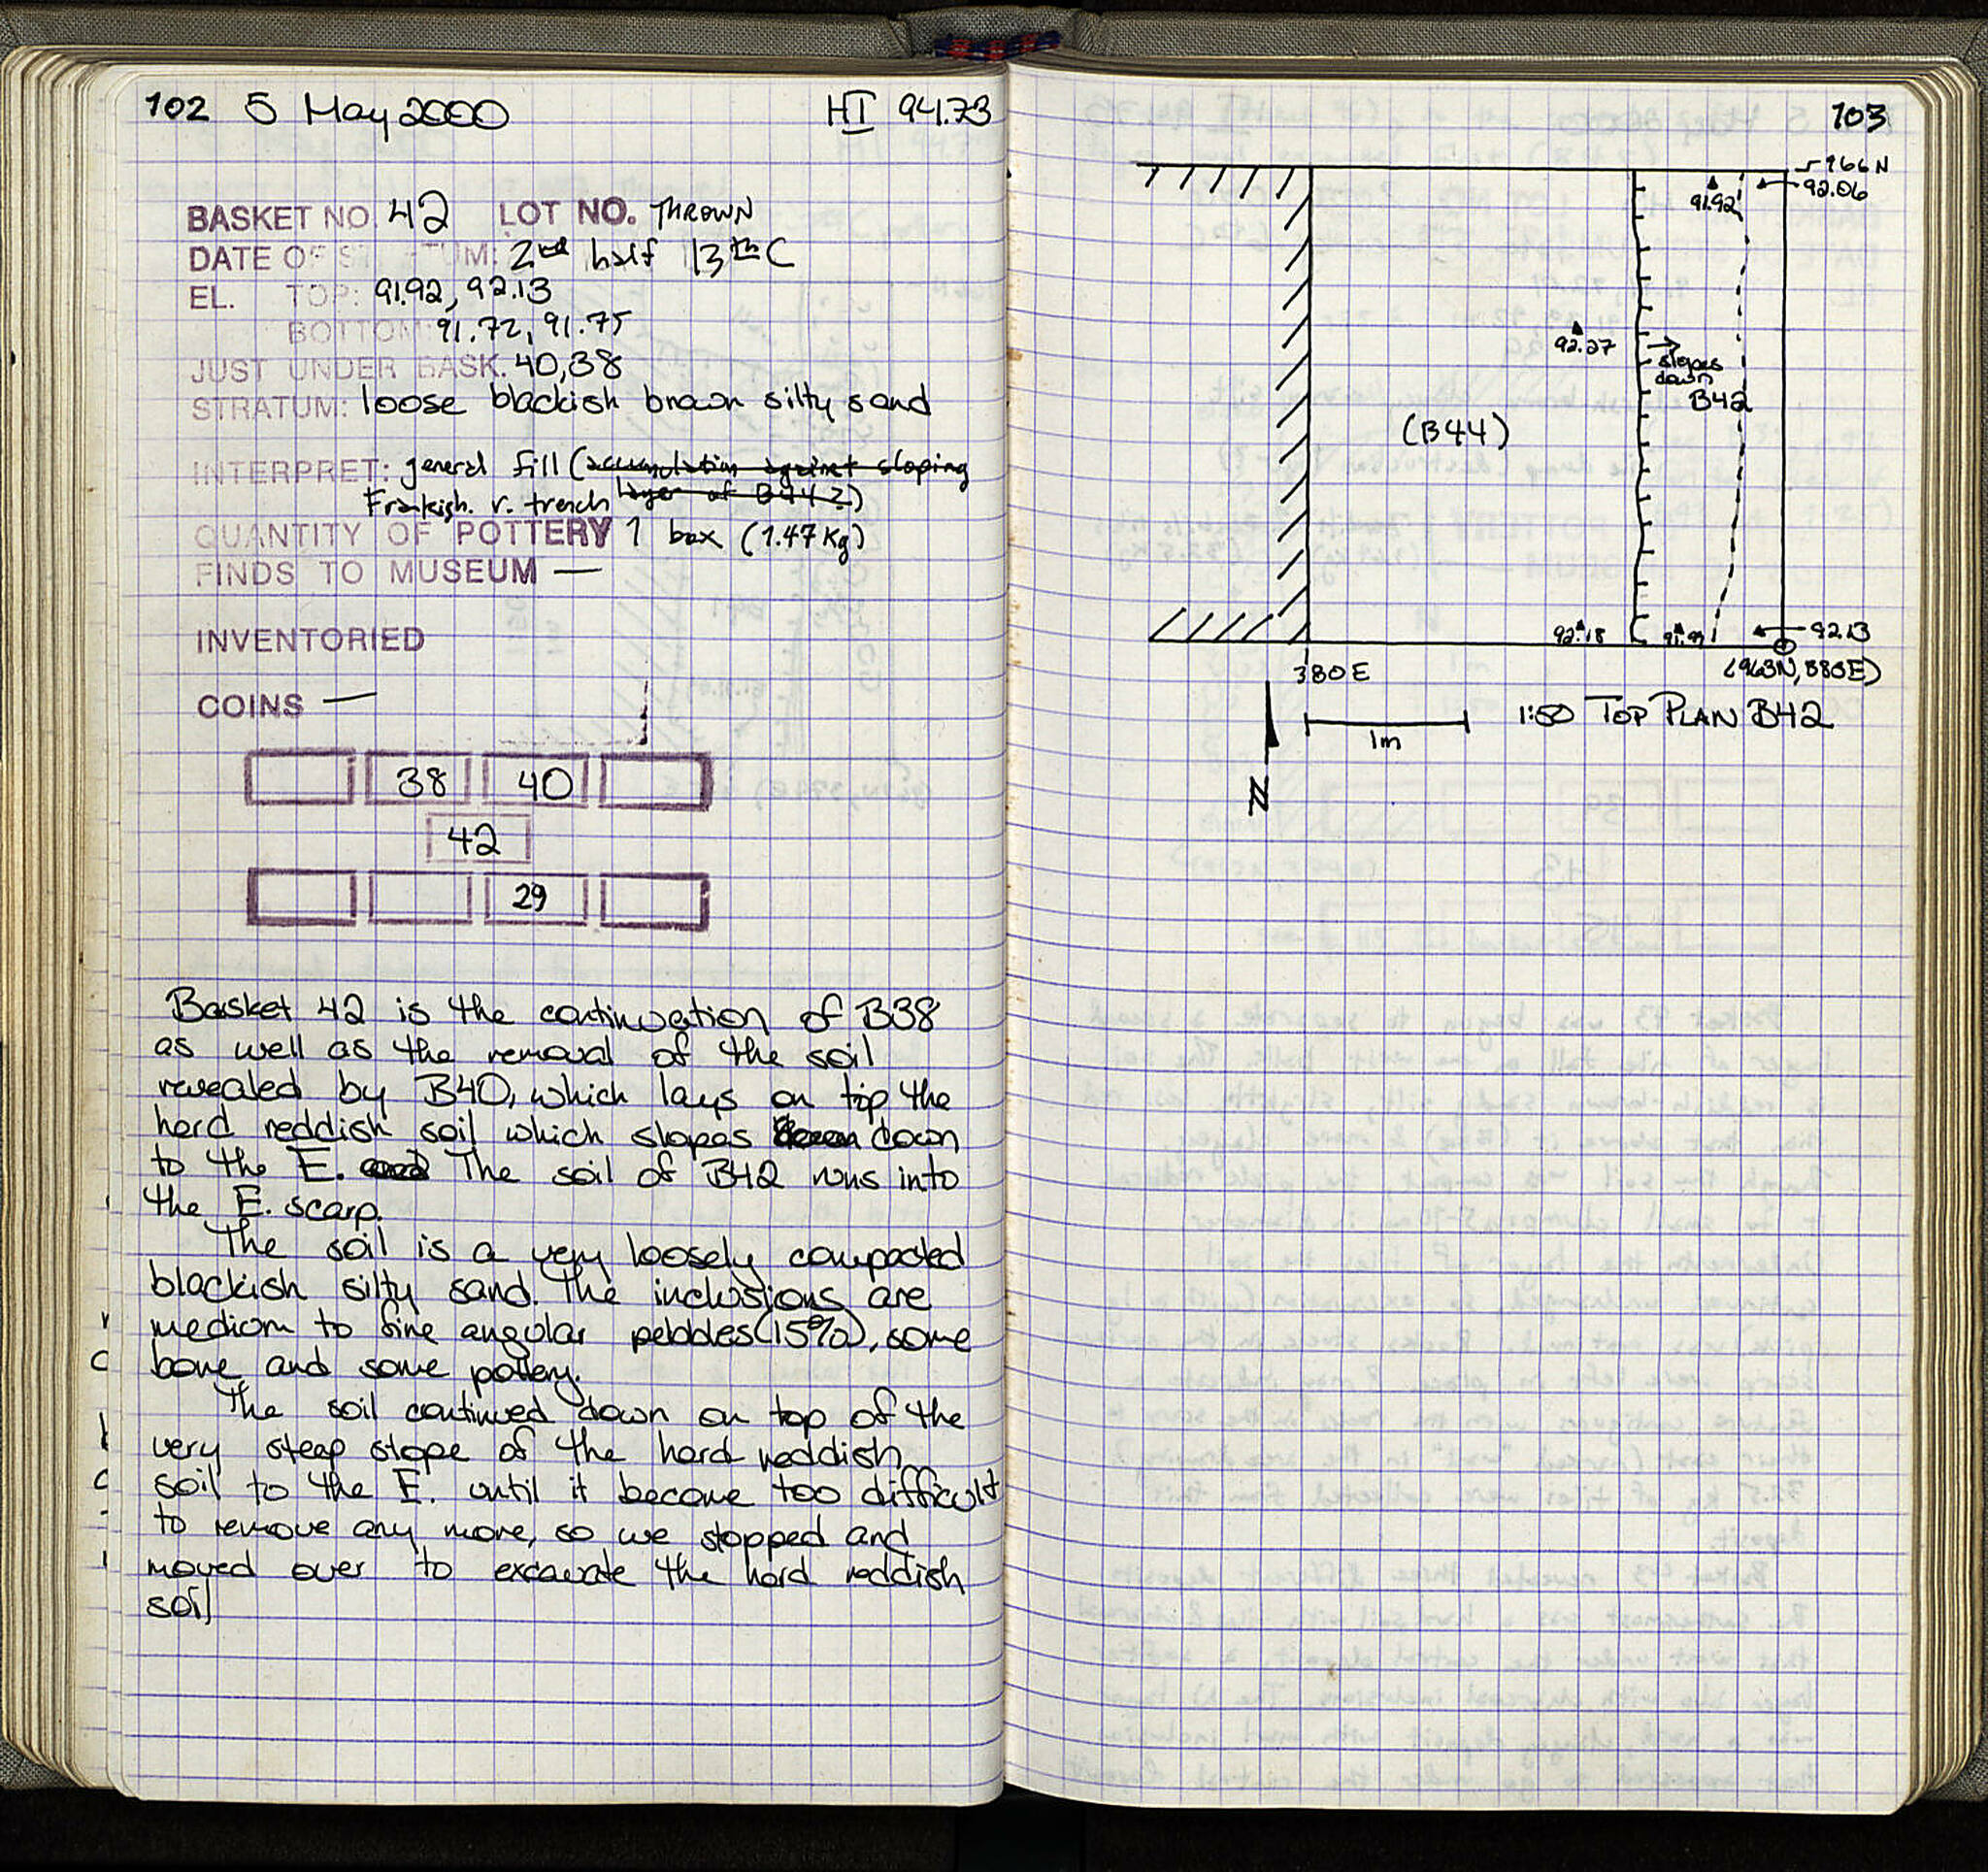 102 5 May 2000 HI 94.73
BASKET NO. 42 LOT NO. THROWN
DATE OF STRATUM: 2nd half 13th C
EL. TOP: 91.92, 92.13
BOTTOM: 91.72, 91.75
JUST UNDER BASK. 40,38
STRATUM: loose blackish brown silty sand
INTERPRET: general fill (accumulation against sloping
Frankish. r. trench layer of B44?)
QUANTITY OF POTTERY 1 box (1.47 Kg)
FINDS TO MUSEUM —
INVENTORIED
COINS —
38 40
42
29
Basket 42 is the continuation of B38
as well as the removal of the soil
revealed by B40, which lays on top the
hard reddish soil which slopes down
to the E. The soil of B42 runs into
the E. scarp.
The soil is a very loosely compacted
blackish silty sand. The inclusions are
medium to fine angular pebbles (15%), some
bone and some pottery.
The soil continued down on top of the
very steap slope of the hard reddish
soil to the E. until it became too difficult
to remove any more, so we stopped and
moved over to excavate the hard reddish
soil
103
966 N
92.06
91.92
92.27
slopes
down
B42
(B44)
92.18
92.13
380E
(963N, 383E)
1:50 TOP PLAN B42
1m
N